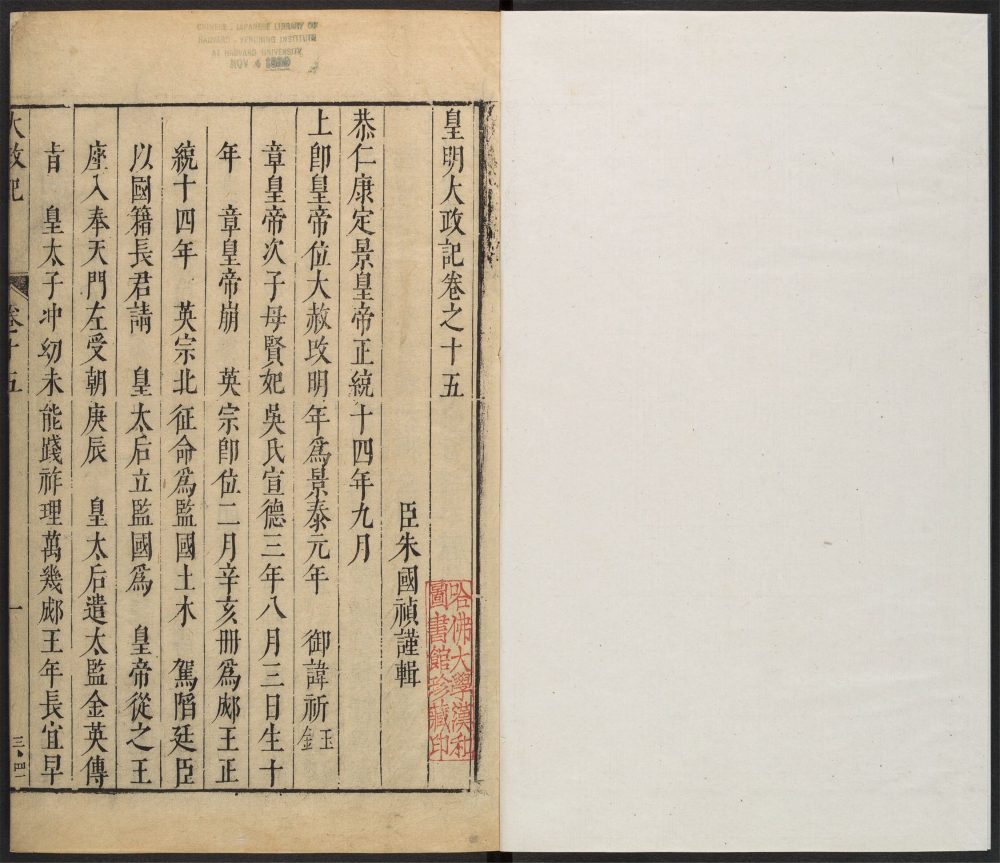 皇明大政記卷之十五
臣朱國禎謹輯
恭仁康定景皇帝正統十四年九月
上卽皇帝位大赦改明年爲景泰元年 御諱祈鈺
章皇帝次子母賢妃吳氏宣德三年八月三日生十
年 章皇帝崩 英宗卽位二月辛亥冊爲郕王正
統十四年 英宗北征命爲監國土木 駕陷廷臣
以國籍長君請 皇太后立監國爲 皇帝從之王
座入奉天門左受朝庚辰 皇太后遣太監金英傳
旨 皇太子冲幼未能踐祚理萬幾郕王年長宜早
大政記 卷十五 一
哈佛大學漢和
圖書館珍藏印
CHINESE - JAPANESE LIBRARY OF
HARVARD - YENCHING INSTITUTE
AT HARVARD UNIVERSITY
NOV 4